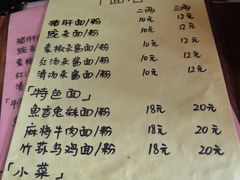 二两 三两
猪肝面/粉 10元 12元
豌杂面/粉 10元 12元
素椒杂酱面/粉 10元 12元
红汤杂酱面/粉 10元 12元
清汤杂酱面/粉 10元 12元
「特色面」
鱼香兔虷面/粉 18元 20元
麻辣牛肉面/粉 18元 20元
竹荪乌鸡面/粉 18元 20元
「小菜」